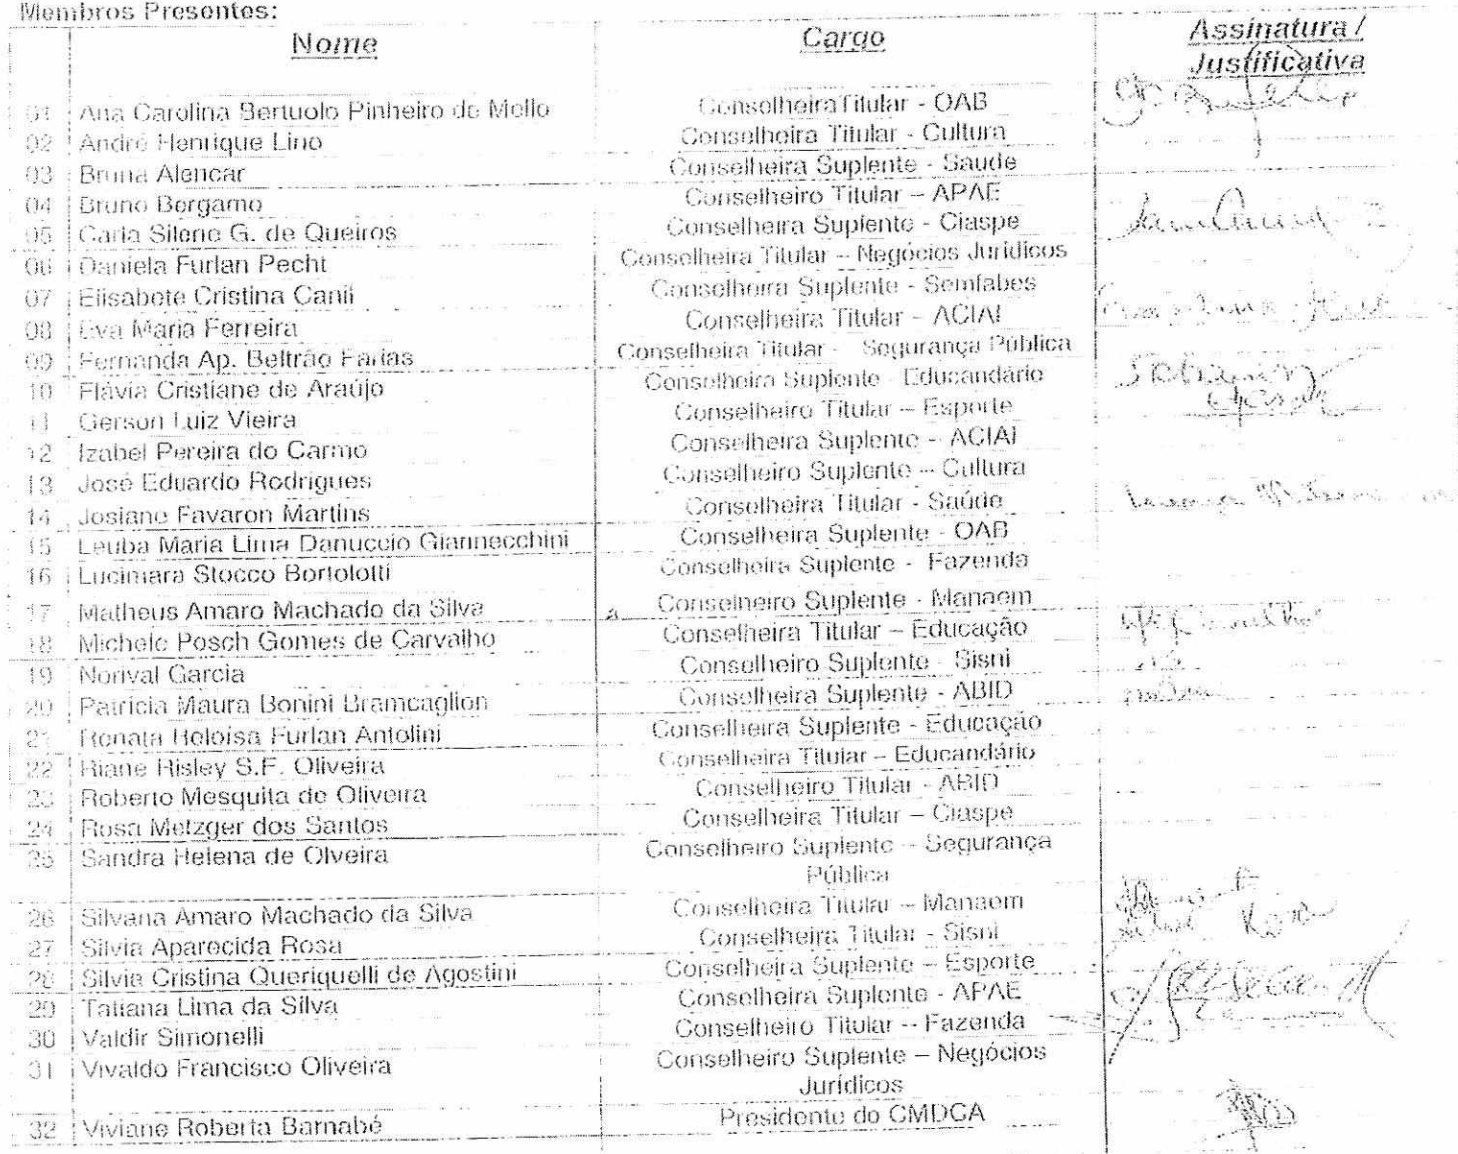 Membros Presentes:
Nome Cargo Assinatura /
Justificativa
01 Ana Carolina Bertuolo Pinheiro de Mello ConselheiraTitular - OAB
02 André Henrique Lino Conselheira Titular - Cultura
03 Bruna Alencar Conselheira Suplente - Saude
04 Bruno Bergamo Conselheiro Titular – APAE
05 Carla Silene G. de Queiros Conselheira Suplente - Ciaspe
06 Daniela Furlan Pecht Conselheira Titular – Negócios Jurídicos
07 Elisabete Cristina Canil Conselheira Suplente - Semfabes
08 Eva Maria Ferreira Conselheira Titular – ACIAI
09 Fernanda Ap. Beltrão Farias Conselheira Titular - Segurança Pública
10 Flávia Cristiane de Araújo Conselheira Suplente - Educandário
11 Gerson Luiz Vieira Conselheiro Titular – Esporte
12 Izabel Pereira do Carmo Conselheira Suplente - ACIAI
13 José Eduardo Rodrigues Conselheiro Suplente – Cultura
14 Josiane Favaron Martins Conselheira Titular - Saúde
15 Leuba Maria Lima Danuccio Giannecchini Conselheira Suplente - OAB
16 Lucimara Stocco Bortolotti Conselheira Suplente - Fazenda
17 Matheus Amaro Machado da Silva Conselheiro Suplente - Manaem
18 Michele Posch Gomes de Carvalho Conselheira Titular – Educação
19 Norival Garcia Conselheiro Suplente - Sisni
20 Patricia Maura Bonini Bramcaglion Conselheira Suplente - ABID
21 Renata Heloisa Furlan Antolini Conselheira Suplente - Educação
22 Riane Risley S.F. Oliveira Conselheira Titular – Educandário
23 Roberto Mesquita de Oliveira Conselheiro Titular - ABID
24 Rosa Metzger dos Santos Conselheira Titular – Ciaspe
25 Sandra Helena de Olveira Conselheiro Suplente – Segurança
Pública
26 Silvana Amaro Machado da Silva Conselheira Titular – Manaem
27 Silvia Aparecida Rosa Conselheira Titular - Sisni
28 Silvia Cristina Queriquelli de Agostini Conselheira Suplente – Esporte
29 Tatiana Lima da Silva Conselheira Suplente - APAE
30 Valdir Simonelli Conselheiro Titular -- Fazenda
31 Vivaldo Francisco Oliveira Conselheiro Suplente – Negócios
Jurídicos
32 Viviane Roberta Barnabé Presidente do CMDCA